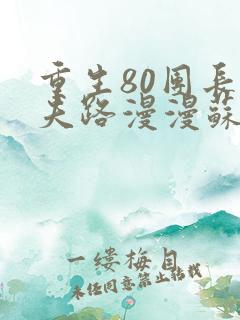 重生80团长
夫路漫漫蘇
一缕梅自
未经同意禁止转载